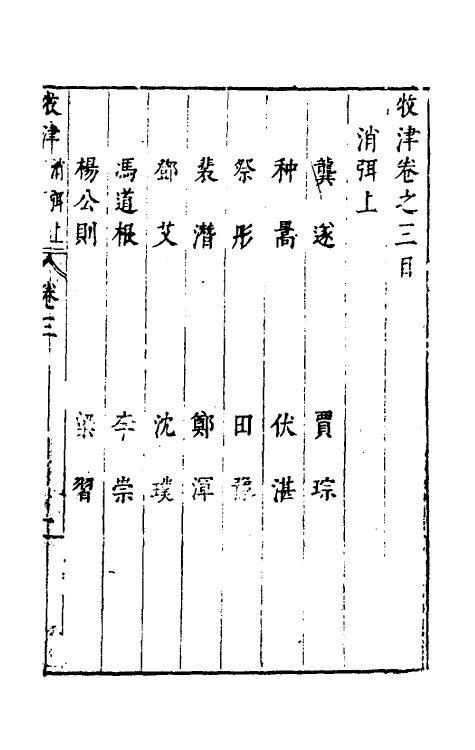 牧津卷之三目
消弭上
龔遂 賈琮
种暠 伏湛
祭肜 田豫
裴潛 鄭渾
鄧艾 沈璞
馮道根 李崇
楊公則 梁習
牧津 消弭上 卷三